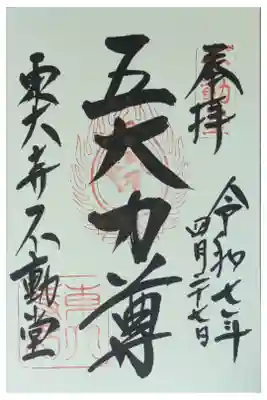 奉拝
令和七年
四月二十七日
五大力尊
東大寺不動堂